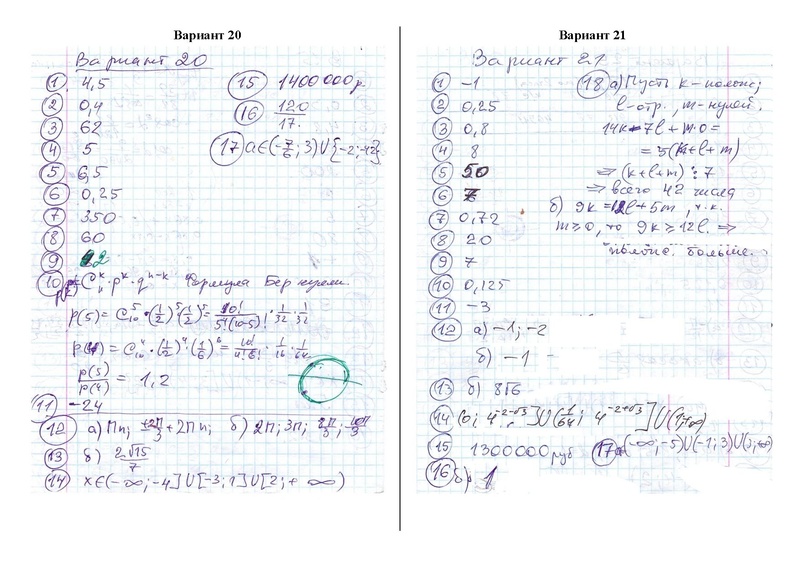 Вариант 20
Вариант 20
1 4,5
2 0,4
3 62
4 5
5 6,5
6 0,25
7 350
8 60
9 2
10 C_n^k · p^k · q^{n-k} Формула Бернулли.
p(5) = C_10^5 · (1/2)^5 (1/2)^5 = 10!/5!(10-5)! · 1/32 · 1/32
p(4) = C_10^4 · (1/2)^4 · (1/6)^6 = 10!/4!6! · 1/16 · 1/64
p(5)/p(4) = 1,2
11 -24
12 а) Пn; ±2П/3 + 2Пn; б) 2П; 3П;
13 б) 2√15/7
14 x∈(-∞;-4]U[-3;1]U[2;+∞)
15 1400000р
16 120/17.
17 a∈(-7/6; 3)U{-2;-12}
Вариант 21
Вариант 21
1 -1
2 0,25
3 0,8
4 8
5 50
6 7
7 0,72
8 20
9 7
10 0,125
11 -3
12 а) -1; -2
б) -1
13 б) 8√6
14 (0; 4^{-2-√3}]U(1/64; 4^{-2+√3}]U(1;+∞)
15 1300000 руб
16 б) 1
17 (-∞;-5)U(-1;3)U(3;+∞)
18 а) Пусть k-полож;
l-отр., m-нулей.
14k-7l+m·0=
=5(k+l+m)
⇒ (k+l+m) ⋮ 7
⇒ всего 42 числа
б) 9k=12l+5m, т.к.
m≥0, то 9k≥12l. ⇒
полож. больше.